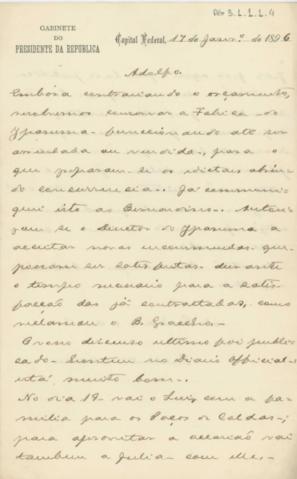 PM 3.1.1.1.4
GABINETE
DO
PRESIDENTE DA REPUBLICA
Capital Federal, 17 de Janrº de 1896
Adolpho.
Embora contrariando o orçamento,
resolvemos conservar a Fabrica do
Ypanema funccionando até ser
arrendada ou vendida, para o
que preparam-se os editaes abrin-
do concurrencia. Já communi-
quei isto ao Bernardino. Autori-
sou-se o Director do Ypanema a
acceitar novas encommendas que
possam ser satisfeitas durante
o tempo necessario para a satis-
facção das já contractadas, como
reclamou o B.
O teu discurso ultimo foi publica-
do no Diario Official
está muito bom.
No dia 18 vai o Luiz com a fa-
milia para os Poços de Caldas;
para aproveitar a occasião vai
tambem a Julia com elle,